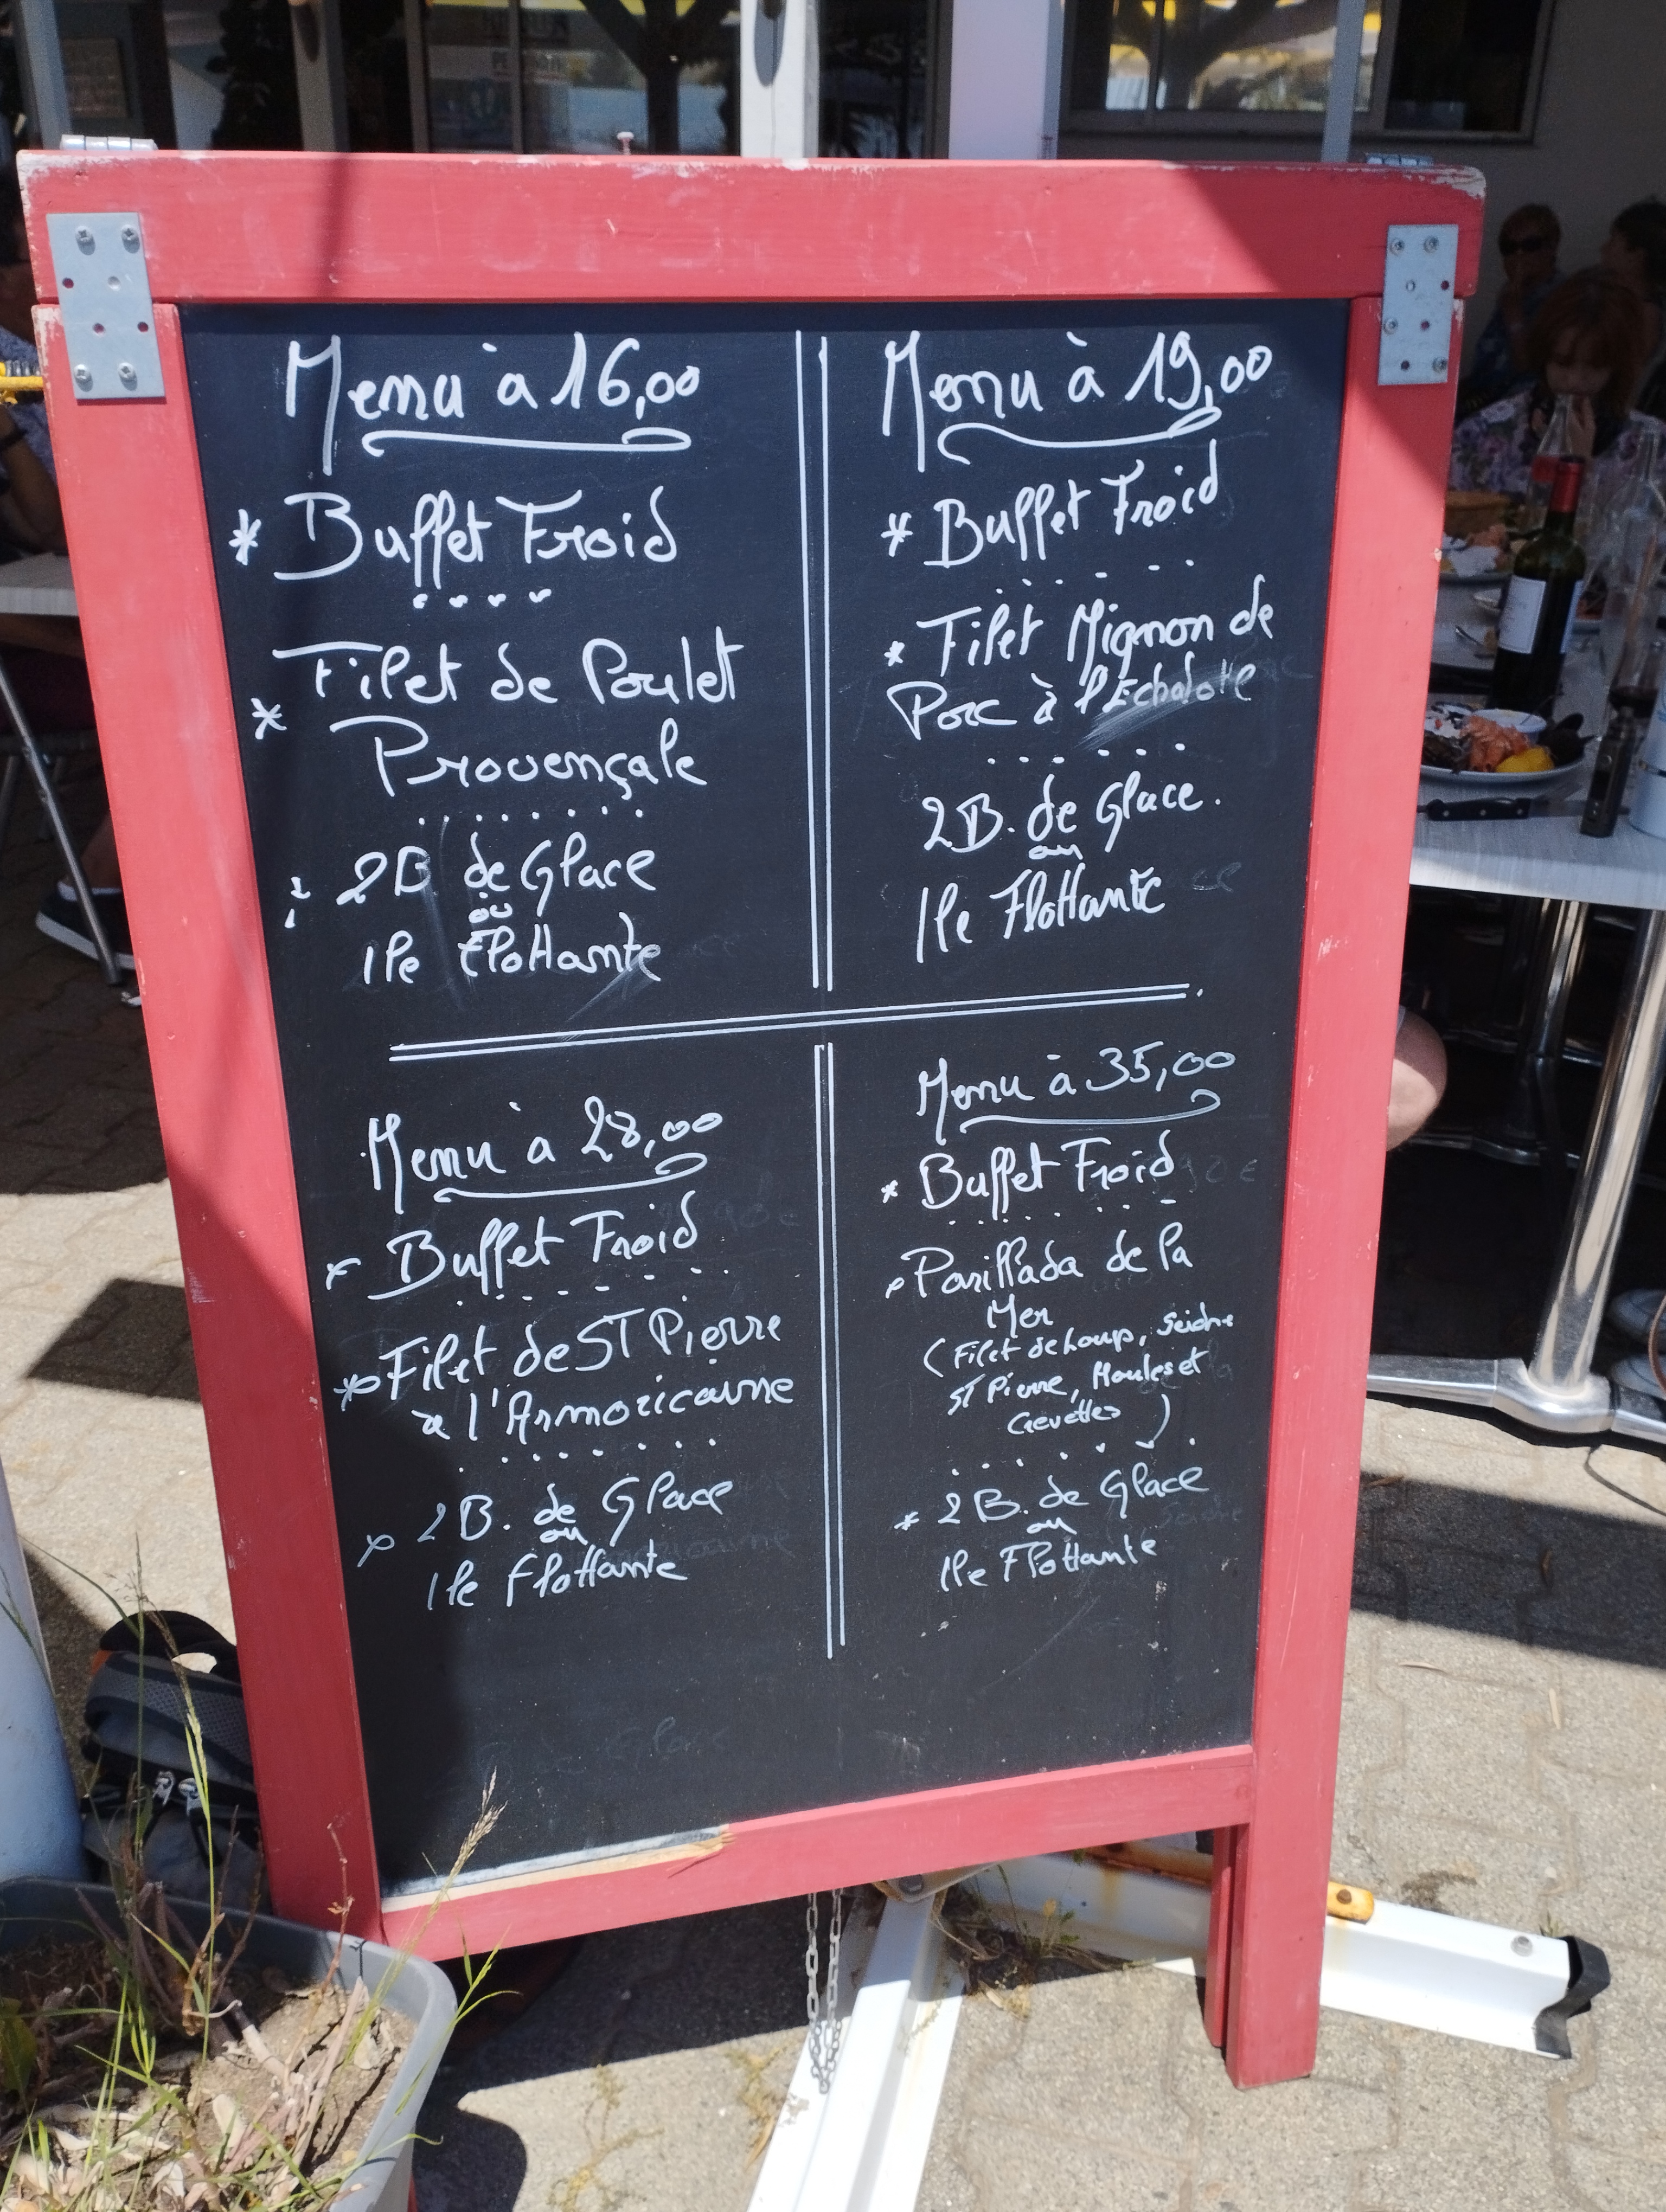 Menu à 16,00
* Buffet Froid
* Filet de Poulet
Provençale
2B de Glace
ou
Ile Flottante
Menu à 19,00
* Buffet Froid
* Filet Mignon de
Porc à l'Echalotte
2B. de Glace.
ou
Ile Flottante
Menu à 28,00
* Buffet Froid
* Filet de ST Pierre
à l'Armoricaine
* 2B. de Glace
ou
Ile Flottante
Menu à 35,00
* Buffet Froid
* Parillada de la
Mer
(Filet de Loup, Seiche
ST Pierre, Moules et
Crevettes)
* 2B. de Glace
ou
Ile Flottante